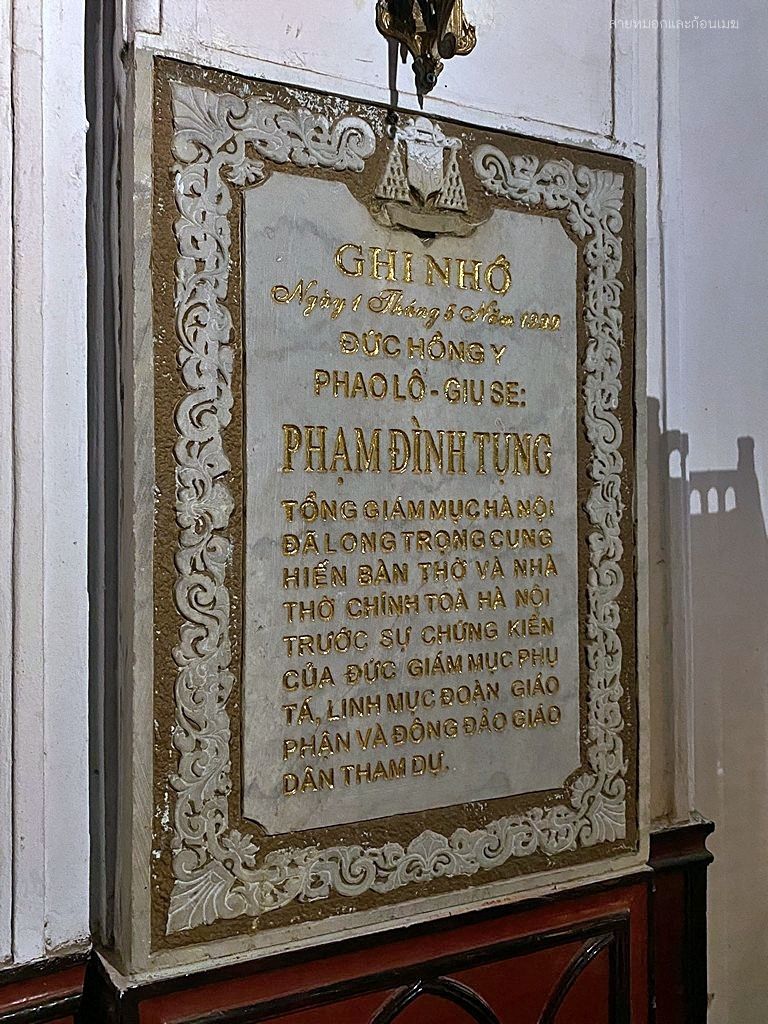 สายหมอกและก้อนเมฆ
GHI NHỚ
Ngày 1 Tháng 5 Năm 1999
ĐỨC HỒNG Y
PHAO LÔ - GIU SE:
PHẠM ĐÌNH TỤNG
TỔNG GIÁM MỤC HÀ NỘI
ĐÃ LONG TRỌNG CUNG
HIẾN BÀN THỜ VÀ NHÀ
THỜ CHÍNH TOÀ HÀ NỘI
TRƯỚC SỰ CHỨNG KIẾN
CỦA ĐỨC GIÁM MỤC PHỤ
TÁ, LINH MỤC ĐOÀN GIÁO
PHẬN VÀ ĐÔNG ĐẢO GIÁO
DÂN THAM DỰ.